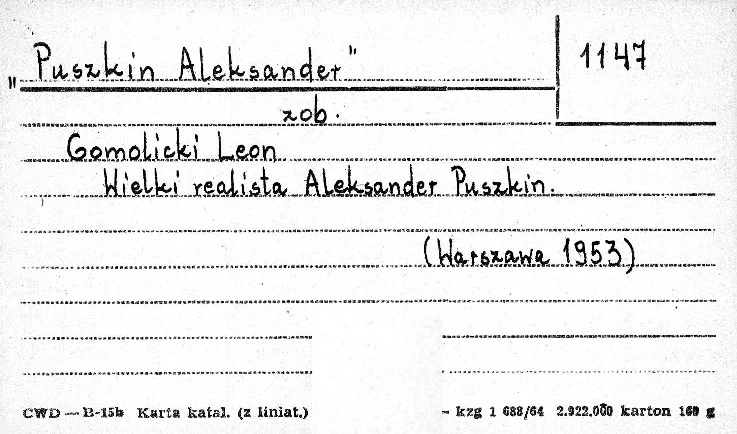 „Puszkin Aleksander"
1147
zob.
Gomolicki Leon
Wielki realista Aleksander Puszkin.
(Warszawa 1953)
CWD — B-15b Karta katal. (z liniat.)
- kzg 1 688/64 2.922.000 karton 160 g